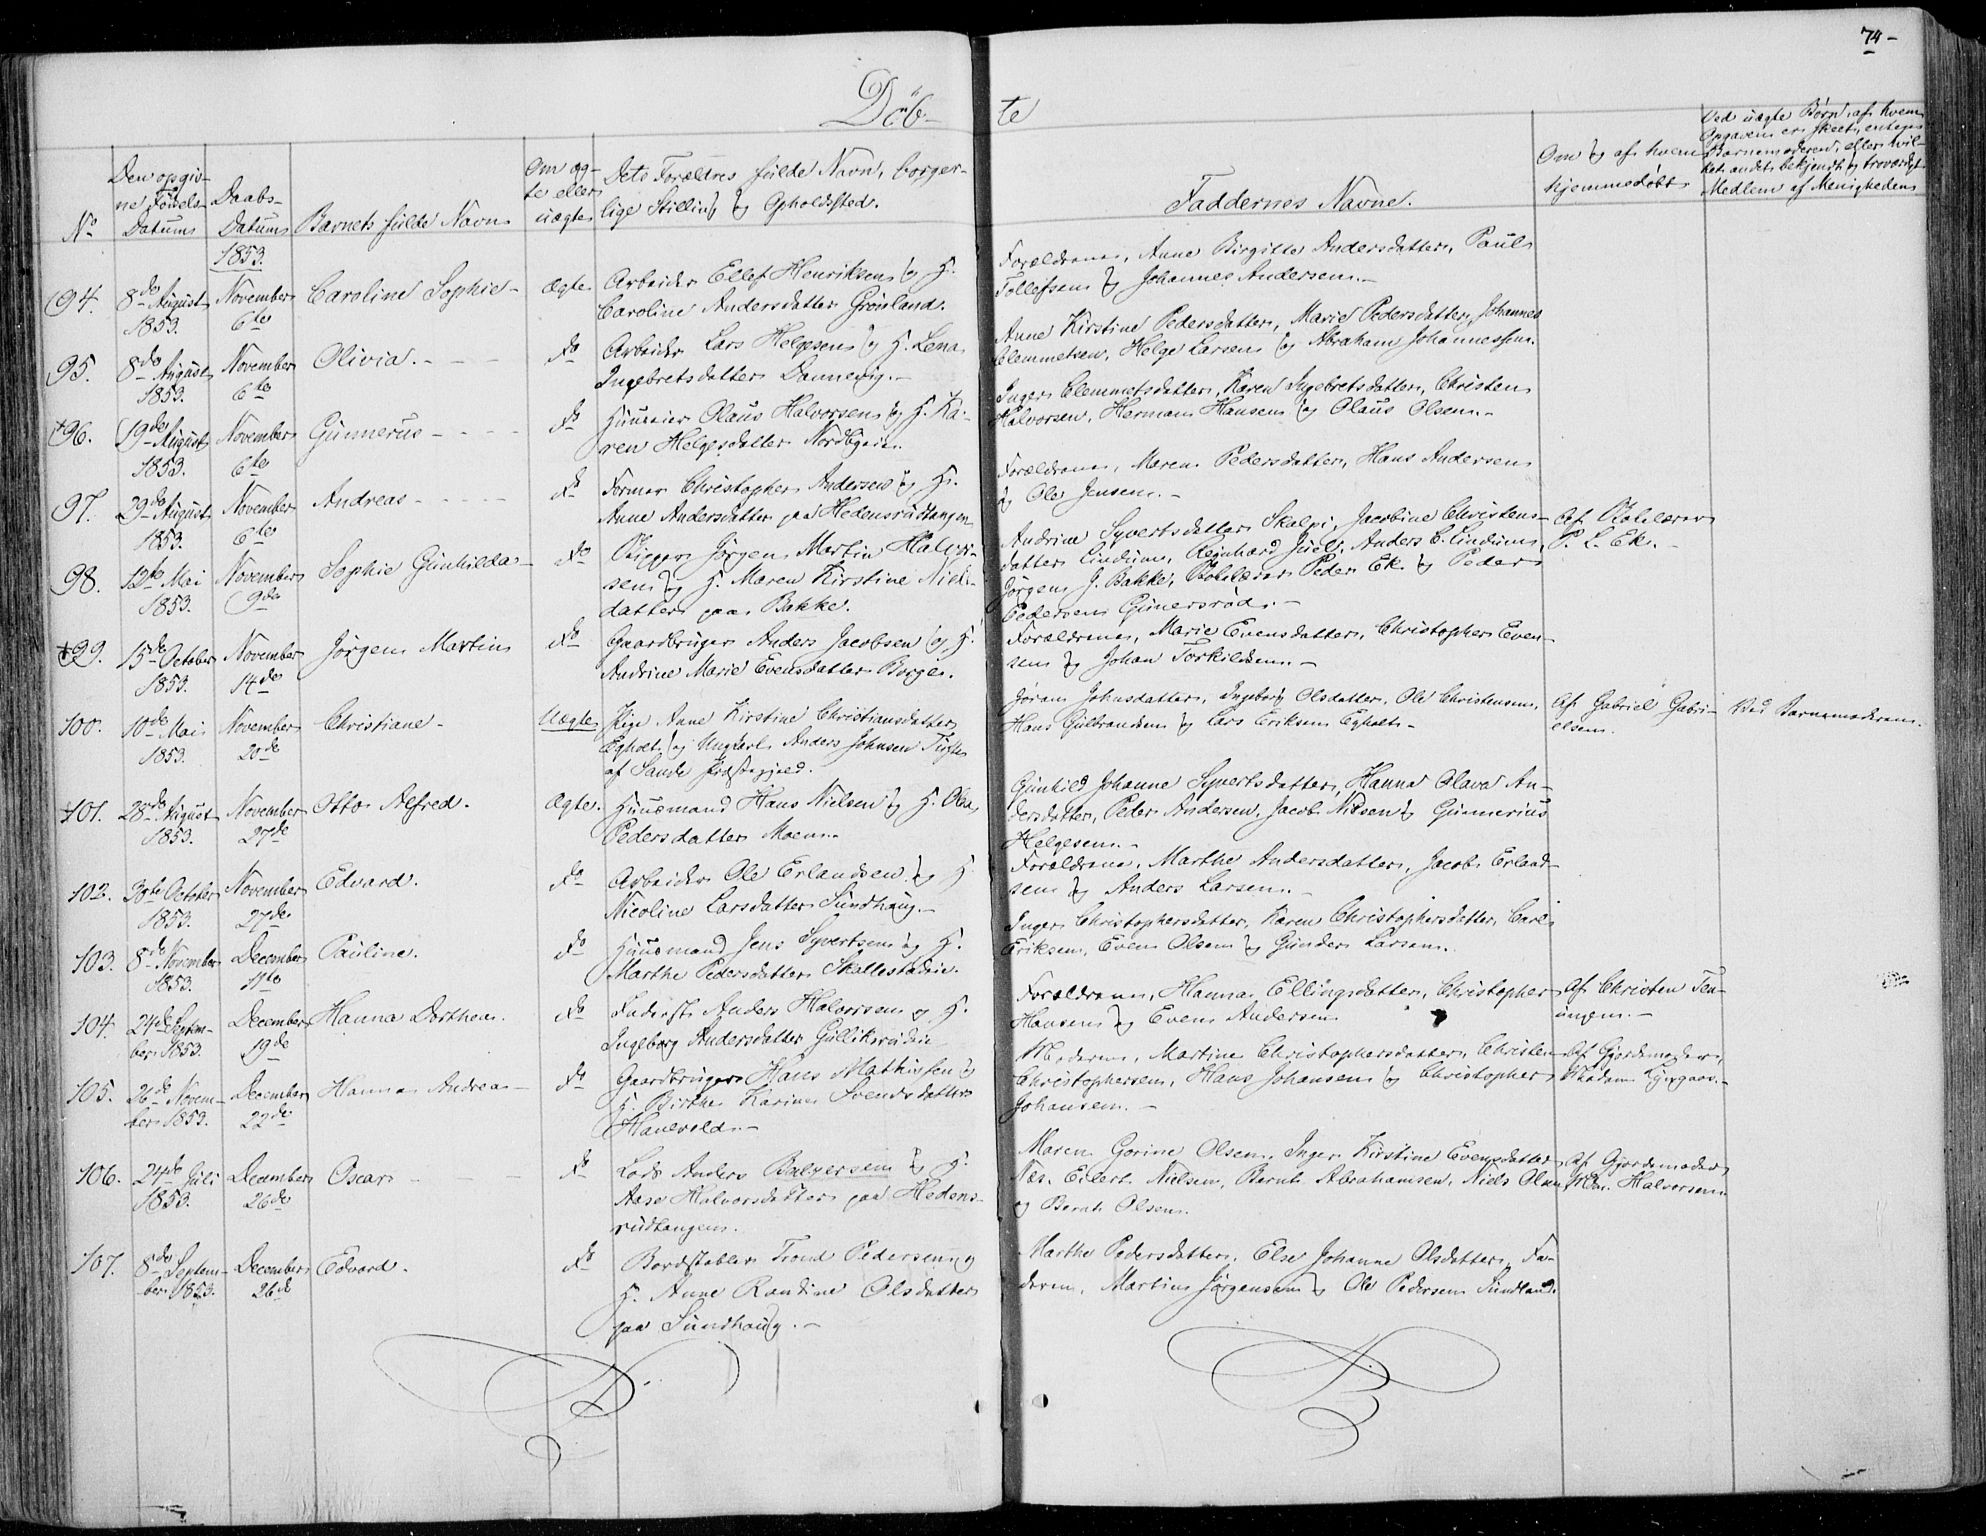 74-
Döb-
te
No
Den opgiv-
ne Födsels-
Datum
Daabs-
Datum
Barnets fulde Navn
Om æg-
te eller
uægte
Dets Forældres fulde Navn, borger-
lige Stilling og Opholdssted.
Faddernes Navne.
Om og af hvem
hjemmedöbt
Ved uægte Børn, af hvem
Opgaven er skeet, enten
Barnemoderen, eller hvil-
ket andet bekjendt og troværdigt
Medlem af Menigheden
1853.
94.
8de August
1853.
November
6te
Caroline Sophie-
Ægte
Arbeider Ellef Henriksen og H.
Caroline Andersdatter Grønland.
Forældrene, Anne Birgitte Andersdatter, Paul
Tollefsen og Johannes Andersen.-
95.
8de August
1853.
November
6te
Olivia.
do
Arbeider Lars Helgesen og H. Lena
Ingebretsdatter Dannevig.-
Anne Kirstine Pedersdatter, Marie Pedersdatter, Johannes
Clemmetsen, Helge Larsen og Abraham Johannessen.
+96.
19de August
1853.
November
6te
Gunnerus-
do
Huuseier Olaus Halvorsen og H. Ka-
ren Helgesdatter
Inger Clemmetsdatter, Karen Ingebretsdatter, Christen
Halvorsen, Herman Hansen og Olaus Olsen.-
97.
29de August
1853.
November
6te
Andreas-
do
Former Christopher Andersen og H.
Anne Andersdatter paa Hedensrudtangen
Forældrene, Maren Pedersdatter, Hans Andersen
og Ole Jensen.-
98.
12te Mai
1853.
November
9de
Sophie Gunhilda-
do
Skipper Jørgen Martin Halvor-
sen og H. Maren Kirstine Niels-
datter paa Bakke.
Andrine Syvertsdatter Skalpi, Jacobine Christens-
datter Lindum, Reinhard Juel, Anders C. Lindum,
Jørgen J. Bakke, Skolelærer Peder Ek. og Peder
Pedersen Gunersrød.-
Af Skolelærer
P. L. Ek.-
+99.
15de October
1853.
November
14de
Jørgen Martin
do
Gaardbruger Anders Jacobsen og H.
Andrine Marie Evensdatter Berger.
Forældrene, Marie Evensdatter, Christopher Even-
sen og Johan Torkildsen.-
100.
10de Mai
1853.
November
20de
Christiane-
Uægte
Pige Anne Kirstine Christiansdatter
Egholt og Ungkarl Anders Johnsen
af Sande Præstegjeld.
Jøran Johnsdatter, Ingeborg Olsdatter, Ole Christensen,
Hans Gulbrandsen og Lars Eriksen Egholt-
Af Gabriel Gabri-
elsen.
Ved Barnemoderen.
+101.
28de August
1853.
November
27de
Otto Alfred.
Ægte.
Huusmand Hans Nielsen og H. Olea
Pedersdatter Moen.-
Gunhild Johanne Syvertsdatter, Hanna Olava An-
dersdatter, Peder Andersen, Jacob Nilsen og Gunnerius
Helgesen.-
102.
30te October
1853.
November
27de
Edvard.
do
Arbeider Ole Erlandsen og H.
Nicoline Larsdatter Sundhaug.-
Forældrene, Marthe Andersdatter, Jacob Erland-
sen og Anders Larsen.-
103.
8de November
1853.
December
11te
Pauline.
do
Huusmand Jens Syvertsen og H.
Marthe Pedersdatter Skallestadeie.
Inger Christophersdatter, Karen Christophersdatter, Carl
Eriksen, Even Olsen og Gunder Larsen.
104.
24de Septem-
ber 1853.
December
19de
Hanna Dorthea.
do
Inderst Anders Halvorsen og H.
Ingeborg Andersdatter Gulliksrudeie
Forældrene, Hanna Ellingsdatter, Christopher
Hansen og Even Andersen
Af Christen Ten-
ungen.-
105.
26de Novem-
ber 1853.
December
22de
Hanna Andrea-
do
Gaardbruger Hans Mathisen og
H. Birthe Karine Svendsdatter
Hanevold.-
Moderen, Martine Christophersdatter, Christen
Christophersen, Hans Johansen og Christopher
Johansen.-
Af Gjordemoder
Madam
106.
24de Juli
1853.
December
26de
Oscar
do
Lods Anders Balzersen og H.
Aase Halvorsdatter paa Hedens-
rudtangen.
Maren Gorine Olsen, Inger Kirstine Evensdatter
Næs. Eilert Nielsen, Bernt Abrahamsen, Niels Olsen
og Bernt Olsen.
Af Gjordemoder
Md. Halvorsen
107.
8de Septem-
ber 1853.
December
26de
Edvard.
do
Bordstabler Trond Pedersen og
H. Anne Randine Olsdatter
paa Sundhaug.-
Marthe Pedersdatter, Else Johanne Olsdatter, Fa-
deren, Martin Jørgensen og Ole Pedersen Sundland